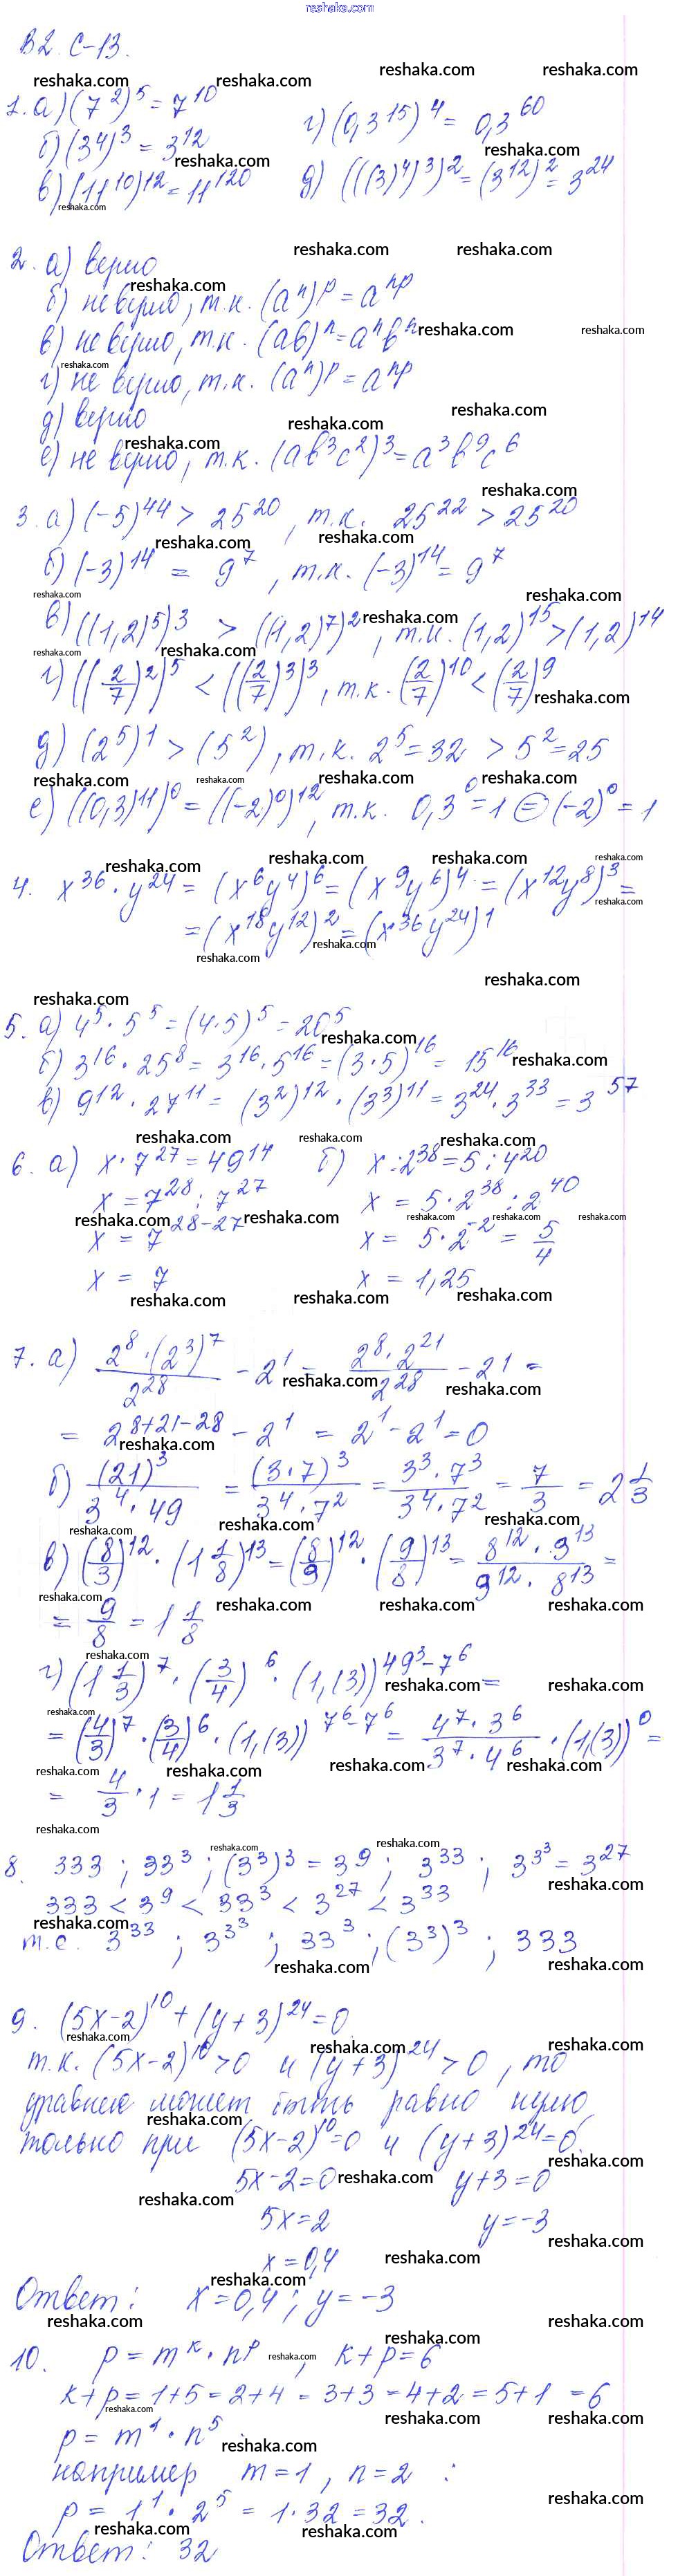 reshaka.com
В2. С-13.
1. а) (7²)⁵ = 7¹⁰
б) (3⁴)³ = 3¹²
в) (11¹⁰)¹² = 11¹²⁰
г) (0,3¹⁵)⁴ = 0,3⁶⁰
д) (((3)⁴)³)² = (3¹²)² = 3²⁴
2. а) верно
б) не верно, т.к. (aⁿ)ᵖ = aⁿᵖ
в) не верно, т.к. (ab)ⁿ = aⁿbⁿ
г) не верно, т.к. (aⁿ)ᵖ = aⁿᵖ
д) верно
е) не верно, т.к. (ab³c²)³ = a³b⁹c⁶
3. а) (-5)⁴⁴ > 25²⁰, т.к. 25²² > 25²⁰
б) (-3)¹⁴ = 9⁷, т.к. (-3)¹⁴ = 9⁷
в) ((1,2)⁵)³ > ((1,2)⁷)², т.к. (1,2)¹⁵ > (1,2)¹⁴
г) ((2/7)²)⁵ < ((2/7)³)³, т.к. (2/7)¹⁰ < (2/7)⁹
д) (2⁵)¹ > (5²), т.к. 2⁵ = 32 > 5² = 25
е) ((0,3)¹¹)⁰ = ((-2)⁰)¹², т.к. 0,3⁰ = 1 = (-2)⁰ = 1
4. x³⁶ · y²⁴ = (x⁶y⁴)⁶ = (x⁹y⁶)⁴ = (x¹²y⁸)³ =
= (x¹⁸y¹²)² = (x³⁶y²⁴)¹
5. а) 4⁵ · 5⁵ = (4·5)⁵ = 20⁵
б) 3¹⁶ · 25⁸ = 3¹⁶ · 5¹⁶ = (3·5)¹⁶ = 15¹⁶
в) 9¹² · 27¹¹ = (3²)¹² · (3³)¹¹ = 3²⁴ · 3³³ = 3⁵⁷
6. а) x · 7²⁷ = 49¹⁴
x = 7²⁸ : 7²⁷
x = 7²⁸⁻²⁷
x = 7
б) x : 2³⁸ = 5 : 4²⁰
x = 5 · 2³⁸ : 2⁴⁰
x = 5 · 2⁻² = 5/4
x = 1,25
7. а) 2⁸ · (2³)⁷ / 2²⁸ - 2¹ = 2⁸ · 2²¹ / 2²⁸ - 2¹ =
= 2⁸⁺²¹⁻²⁸ - 2¹ = 2¹ - 2¹ = 0
б) (21)³ / 3⁴ · 49 = (3·7)³ / 3⁴ · 7² = 3³ · 7³ / 3⁴ · 7² = 7/3 = 2 1/3
в) (8/3)¹² · (1 1/8)¹³ = (8/9)¹² · (9/8)¹³ = 8¹² · 9¹³ / 9¹² · 8¹³ =
= 9/8 = 1 1/8
г) (1 1/3)⁷ · (3/4)⁶ · (1,(3))^(49³-7⁶) =
= (4/3)⁷ · (3/4)⁶ · (1,(3))^(7⁶-7⁶) = 4⁷ · 3⁶ / 3⁷ · 4⁶ · (1,(3))⁰ =
= 4/3 · 1 = 1 1/3
8. 333 ; 33³ ; (3³)³ = 3⁹ ; 3³³ ; 3^(3³) = 3²⁷
333 < 3⁹ < 33³ < 3²⁷ < 3³³
т.е. 3³³ ; 3^(3³) ; 33³ ; (3³)³ ; 333
9. (5x-2)¹⁰ + (y+3)²⁴ = 0
т.к. (5x-2)¹⁰ > 0 и (y+3)²⁴ > 0, то
может быть равно нулю
только при (5x-2)¹⁰ = 0 и (y+3)²⁴ = 0.
5x-2 = 0 y+3 = 0
5x = 2 y = -3
x = 0,4
Ответ: x = 0,4; y = -3
10. p = mᵏ · nᵖ, k+p = 6
k+p = 1+5 = 2+4 = 3+3 = 4+2 = 5+1 = 6
p = m¹ · n⁵
например m = 1, n = 2 :
p = 1¹ · 2⁵ = 1 · 32 = 32.
Ответ: 32